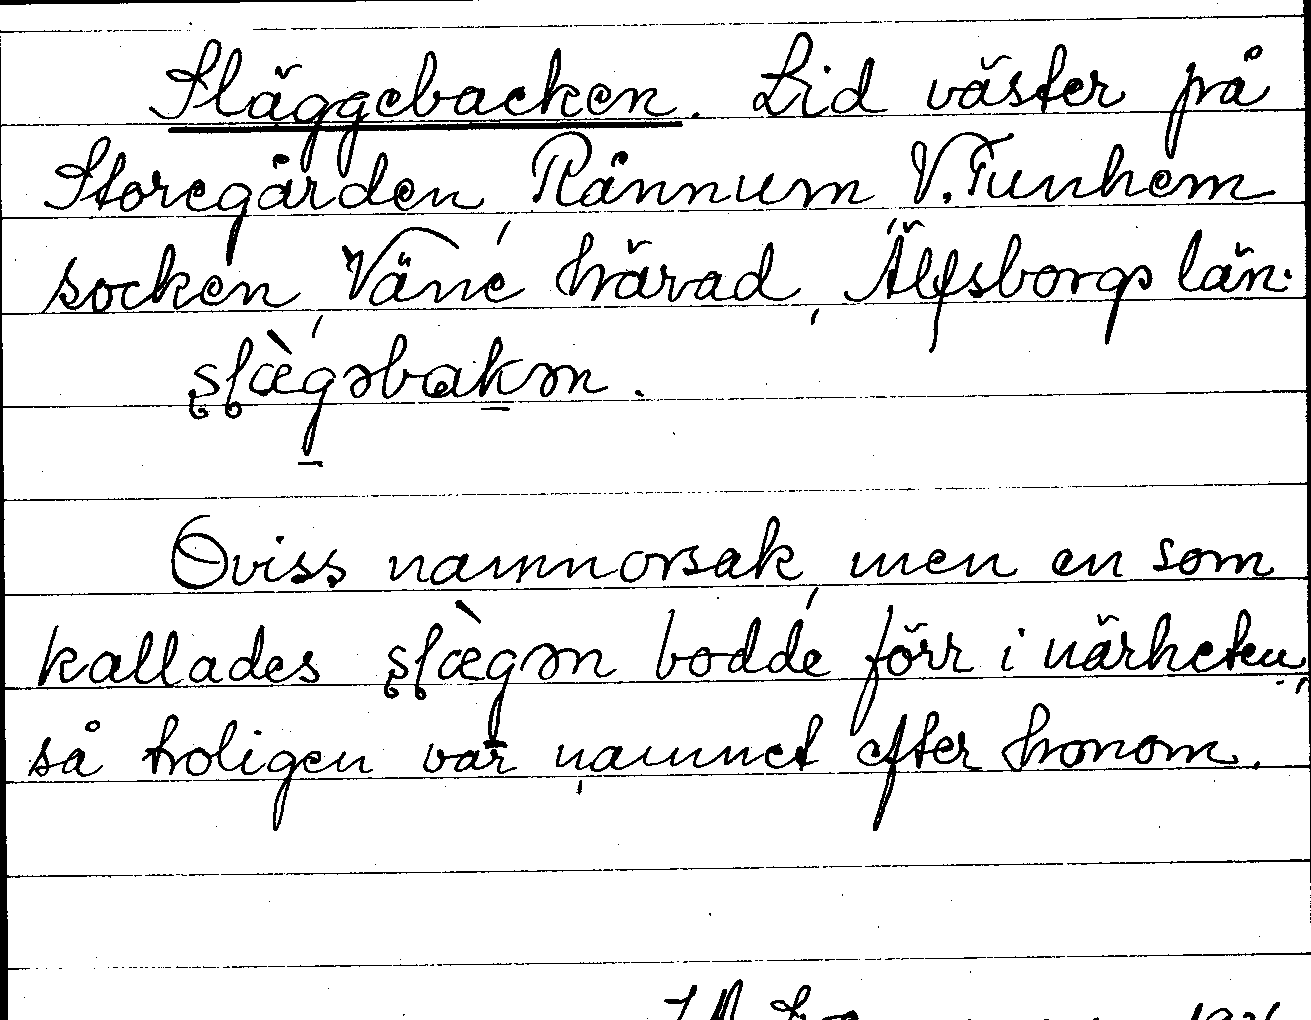 Släggebacken. Lid väster på
Storegården, Rånnum, V. Tunhem
socken, Väne härad, Älfsborgs län.
s̨l̨æ̀g̠əbak̠ən.
Oviss namnorsak, men en som
kallades s̨l̨æ̀g̠ən bodde förr i närheten,
så troligen var namnet efter honom.